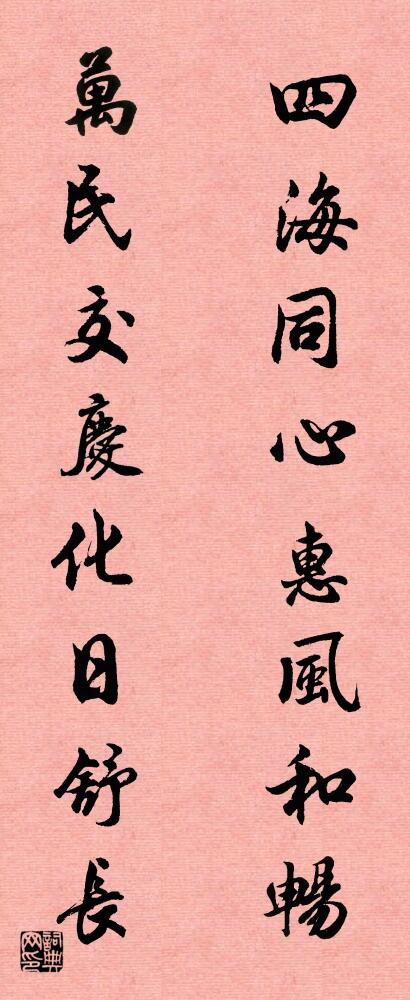 四海同心惠風和暢
萬民交慶化日舒長
詞典網印